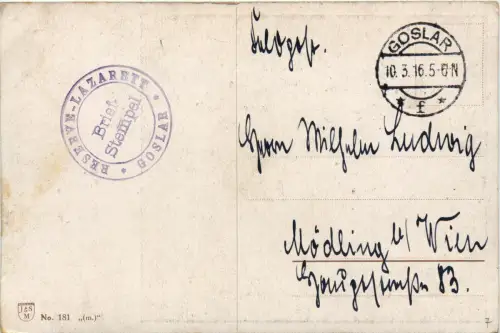 RESERVE-LAZARETT * GOSLAR *
Brief-
Stempel
Feldpost.
GOSLAR
10.3.16.5-6N
* f *
Herrn Wilhelm Ludwig
Mödling b/ Wien
Hauptstraße 83.
J&S
M
No. 181 „(m.)“